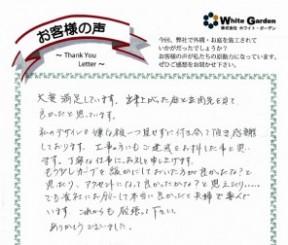 お客様の声
～ Thank You
Letter～
White Garden
株式会社 ホワイト・ガーデン
今回、弊社で外構・お庭を施工されて
いかがだったでしょうか？
お客様の声が私たちの原動力になっています。
ぜひご感想をお聞かせ下さい。
大変満足しています。出来上がった庭と玄関先を見て
良かったと思っています。
私のデザインを嫌な顔一つ見せずに付き合って頂き感謝
しております。工事の方にもご迷惑をお掛けした事と思い
ます。丁寧な仕事に、お礼を申し上げます。
もう少しカーブを緩やかにしておいた方が良かったかな？と
思ったり、アクセントになって良かったかな？と思えたり……
でも貴社にお願いして本当に良かったと夫婦で喜んで
います。これからも頑張って下さい。
ありがとうございました。